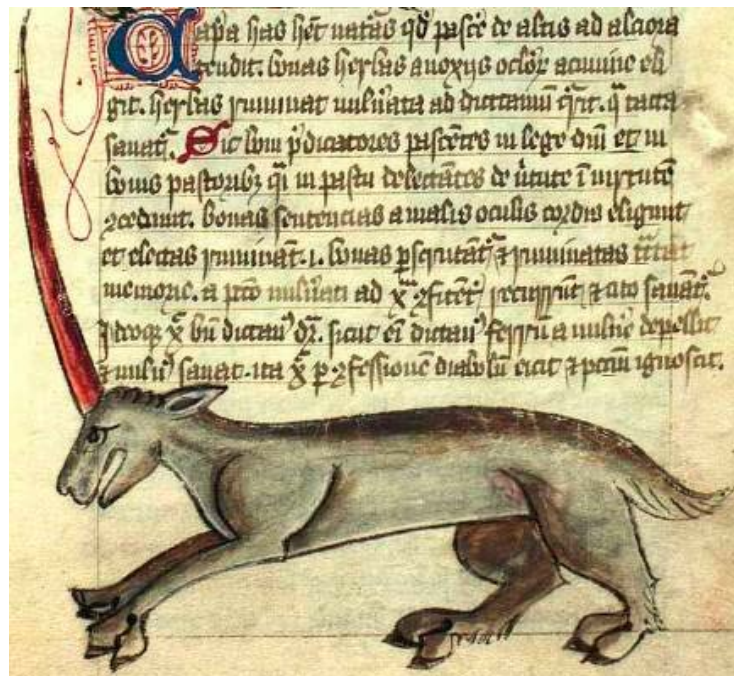 Cap̄a has hēt nat̄as qđ pascẽ de altis ad alciora
tendit. bonas herbas a noxijs oclo℞ acumine eli
git. herbas ruminat uuln̄ata ad dictamū q̄rit. q̄ tacta
sanat̃. Sic boni p̄dicatores pascētes in lege dn̄i et in
bonis pastoribꝫ q̄i in pastu delectātes de u̾tute ī uirtutē
ꝯcedunt. bonas sentencias a malis oculis cordis eligunt
et electas rumināt. i. bonas ꝑscrutāt̃ ⁊ ruminatas
memorie. a pctō uuln̄ati ad xm̄ ꝯfitēt̃ recurrūt ⁊ cito sanāt̃.
Ideoqꝫ x̄ bn̄ dictan᾽ dr̄. sicut ei̅ dictan᾽ ferrū a uuln̄e depellit
⁊ uuln᾽ sanat. ita x̄ ꝑ ꝯfessionē diabolū eicit ⁊ pctm̄ ignoscit.